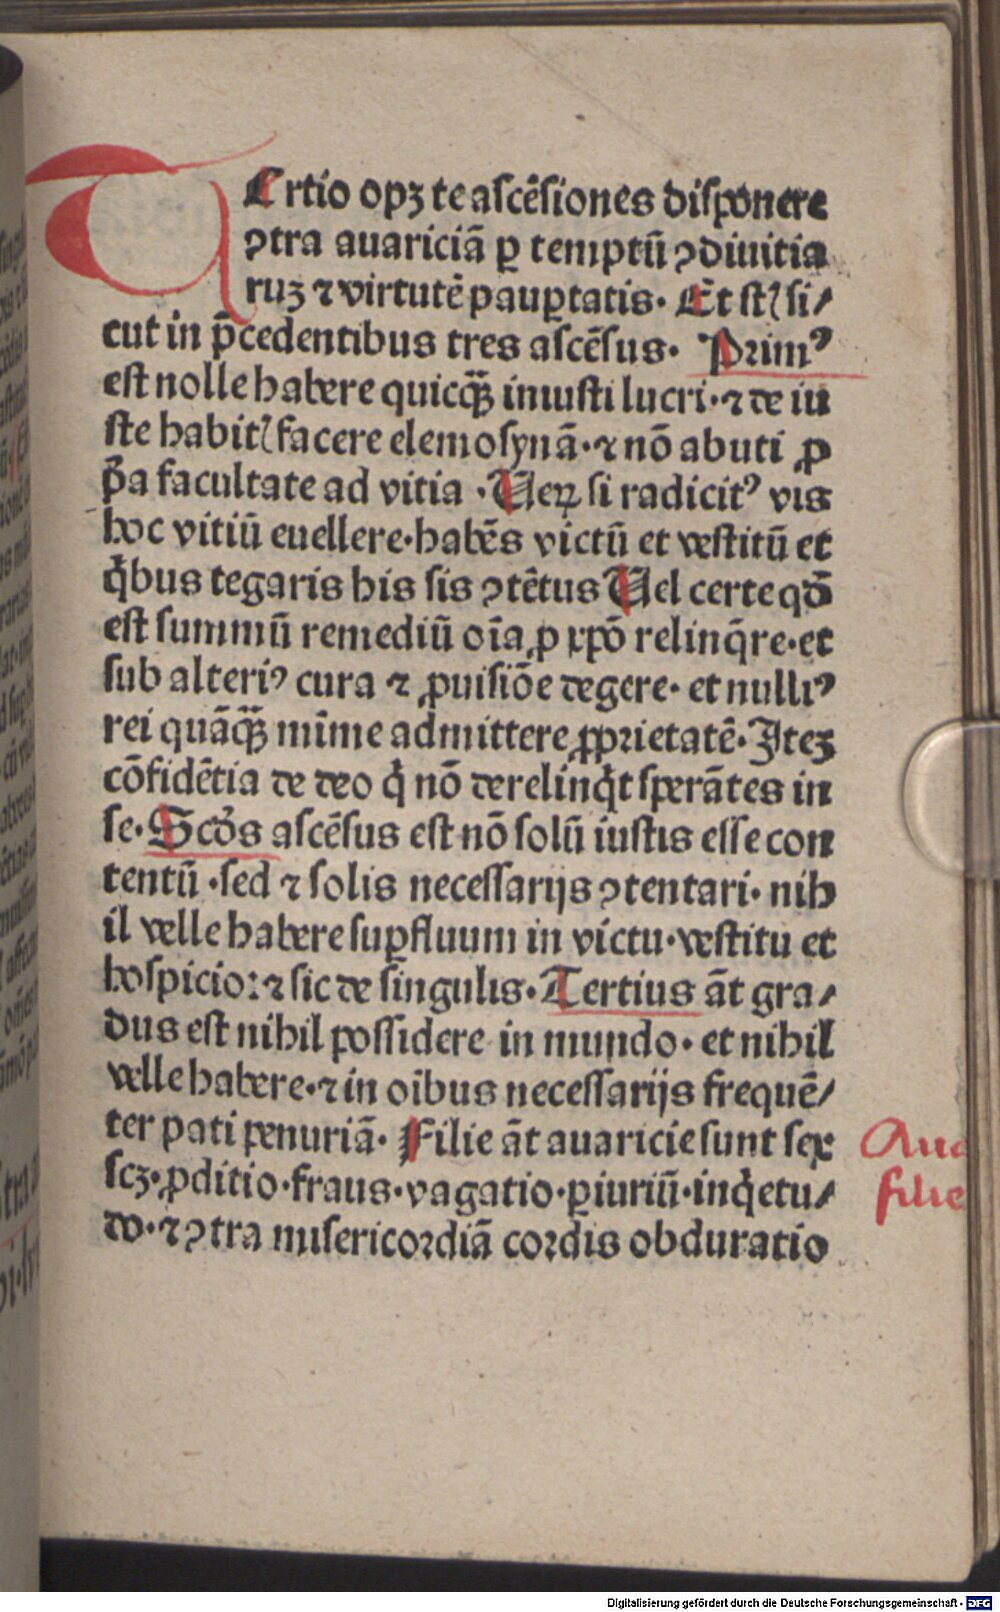 TErtio opꝫ te ascẽsiones disponere
ꝯtra auariciã ꝑ temptũ ꝯ diuitia
ruꝫ ⁊ virtutẽ pauꝑtatis· Et st̃ si⸗
cut in p̃cedentibus tres ascẽsus· Primꝰ
est nolle habere quicq̃ꝫ iniusti lucri·⁊ de iu
ste habit̃ facere elemosynã·⁊ nõ abuti ꝓ
p̃a facultate ad vitia ·Ueꝝ si radicitꝰ vis
hoc vitiũ euellere·habẽs victũ et vestitũ et
q̇bus tegaris his sis ꝯtẽtus Uel certe qđ
est summũ remediũ oĩa ꝓ xp̃o relinq̃re·et
sub alteriꝰ cura ⁊ ꝓuisiõe degere· et nulliꝰ
rei quãq̃ꝫ mĩme admittere ꝓprietatẽ·Iteꝫ
cõfidẽtia de deo q̇ nõ derelinq̇t sperãtes in
se·Scđs ascẽsus est nõ solũ iustis esse con
tentũ ·sed ⁊ solis necessarijs ꝯtentari· nih
il velle habere suꝑfluum in victu·vestitu et
hospicio:⁊ sic de singulis·Tertius ãt gra⸗
dus est nihil possidere in mundo· et nihil
velle habere·⁊ in oĩbus necessarijs frequẽ⸗
ter pati penuriã· Filie ãt auaricie sunt sex
scꝫ·ꝓditio·fraus·vagatio·ꝑiuriũ·inq̇etu⸗
do·⁊ ꝯtra misericordiã cordis obduratio
Aua
filie
Digitalisierung gefördert durch die Deutsche Forschungsgemeinschaft · DFG